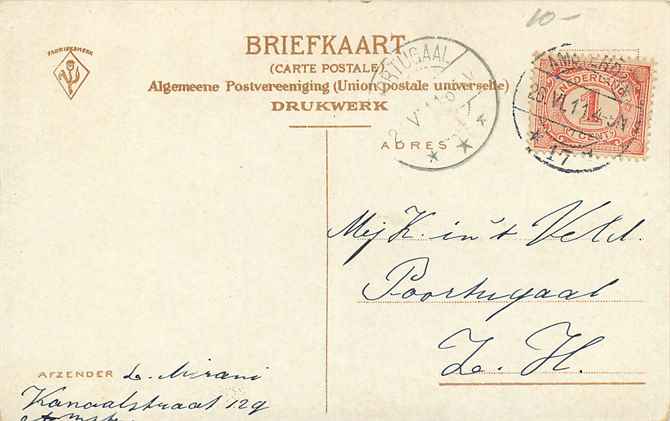 10-
FABRIEKSMERK
BRIEFKAART
(CARTE POSTALE)
Algemeene Postvereeniging (Union postale universelle)
DRUKWERK
ADRES
NEDERLAND
1
CENT
17
Mej K. in't Veld.
Poortugaal
Z. H.
AFZENDER L. Mirani
Kanaalstraat 129